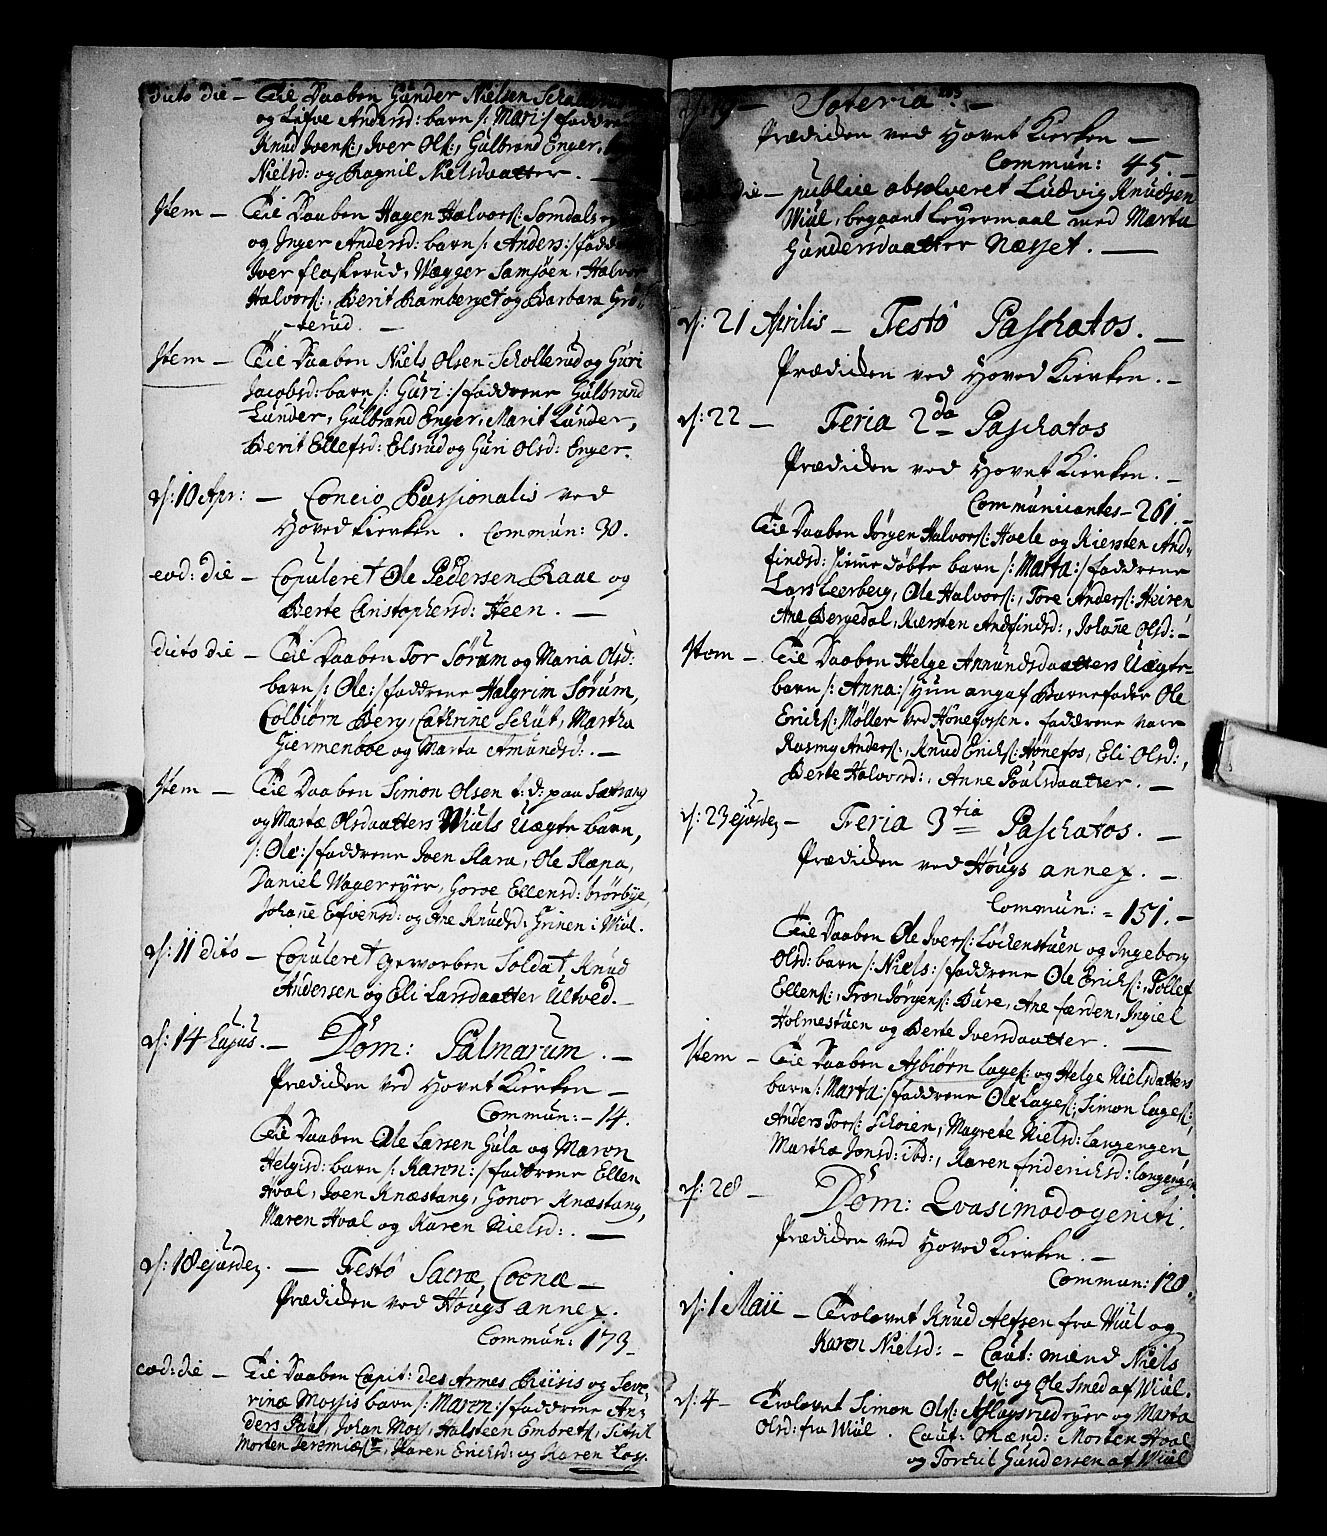 dito die — Til Daaben Gunder Nielsen
og Lisve Andersd: barn /: Mari :/ faddrene
Knud Ivers:, Iver Ols:, Gulbrand Enger,
Nielsd: og Ragnil Nielsdaatter. —
Item — Til Daaben Hagen Halvors: Somdals
og Inger Andersd: barn /: Anders :/ faddrene
Iver flaskerud, Wegger Samsøen, Halvor
Halvors:, Berit Ramberget og Barbara Grøt-
terud. —
Item — Til Daaben Niels Olsen Schollerud og Guri
Jacobsd: barn /: Guri :/ faddrene Gulbrand
Lunder, Gulbrand Enger, Marit Lunder,
Berit Ellefsd: Elsrud og Guri Olsd: Enger.
d/: 10 Apr: — Concio Passionalis ved
Hovedkierken. Commun: 30.
eod: die — Copuleret Ole Pedersen Raae og
Berte Cristophersd: Heen. —
dito die — Til Daaben Tor Sørum og Maria Olsd:
barn /: Ole :/ faddrene Halgrim Sørum,
Colbiørn Berg, Cathrine Schut, Martha
Giermenboe og Marta Amundsd: —
Item — Til Daaben Simon Olsen t: d: paa Sætrang
og Martæ Olsdaatters Wiuls Uægte barn,
/: Ole :/ faddrene Joen Klara, Ole Klæpa,
Daniel Wagerryer, Goroe Ellensd: brørbye,
Johanne Erfvensd: og Ane Knudsd: Grinen i Wiul.
d/: 11 dito — Copuleret Geworben Soldat Knud
Andersen og Eli Larsdaatter Ultved. —
d/: 14 hujus. — Dom: Palmarum. —
Prædiken ved Hovet Kierken —
Commun: — 14.
Til Daaben Ole Larsen Gula og Maren
Helgisd: barn /: Karen :/ faddrene Ellen
Hval, Joen Knæstang, Gonor Knæstang,
Maren Hval og Karen Nielsd: —
d/: 18 ejusdem. — Festo Sacræ Coenæ —
Prædiken ved Hougs annex.
Commun: 173
eod: die — Til Daaben Capit: des Armes Riisis og Seve-
rinæ Mossis barn /: Maren :/ faddrene An-
ders Paus, Johan Mos, Halsteen Embrets,
Morten Jeremiæs:, Karen Ericksd: og Karen

d/: 19 — Soteria. —
Prædiken ved Hovet Kierken —
Commun: 45. —
die — publice absolveret Ludvig Knudsen
Wiul, begaaet Leyermaal med Marta
Gundersdaatter Næsset. —
d/: 21 Aprilis — Festo Paschatos. —
Prædiken ved Hoved Kierken. —
d/: 22 — Feria 2da Paschatos
Prædiken ved Hovet Kierken. —
Communicantes — 261. —
Til Daaben Jørgen Halvors: Hvele og Kiersten And-
findsd: hiemedøbte barn /: Marta :/ faddrene
Lars Leerberg, Ole Halvors:, Tore Anders: Heiren
Ane Bergedal, Kiersten Andfindsd:, Johanne Olsd: —
Item — Til Daaben Helge Annundsdaatters Uægte-
barn /: Anna :/ Hun angaf Barnefader Ole
Ericks: Møller ved Hønefossen. faddrene vare
Rasmg Anders:, Knud Ericks: Hønefos, Eli Olsd:,
Berte Halvorsd:, Anne Poulsdaatter. —
d/: 23 ejusdem — Feria 3tia Paschatos. —
Prædiken ved Hougs annex. —
Commun: = 151. —
Til Daaben Ole Ivers: Løckenstuen og Ingeborg
Olsd: barn /: Niels :/ faddrene Ole Ericks:, Tollef
Ellens:, Tron Jørgens: Bure, Ane færden, Ingiel
Holmestuen og Berte Iversdaatter. —
Item — Til Daaben Asbiørn Lages: og Helge Nielsdatters
barn /: Marta :/ faddrene Ole Lages:, Simon Lages:,
Anders Tors: Schoien, Magrete Nielsd: Langengen,
Martha Jonsd: ibd:, Karen friderichsd: Langengen
d/: 28 — Dom: Qvasimodogeniti.
Prædiken ved Hoved Kierken. —
Commun: 120.
d/: 1 Maii — Trolovet Knud Alfsen fra Wiul og
Karen Nielsd: — Caut: mænd Niels
Ols: og Ole Smed af Wiul.
d/: 4 — Trolovet Simon Ols: Aslagsriedryer og Marta
Olsd: fra Wiul. Caut: Mænd: Morten Hval
og Torckil Gundersen af Wiul